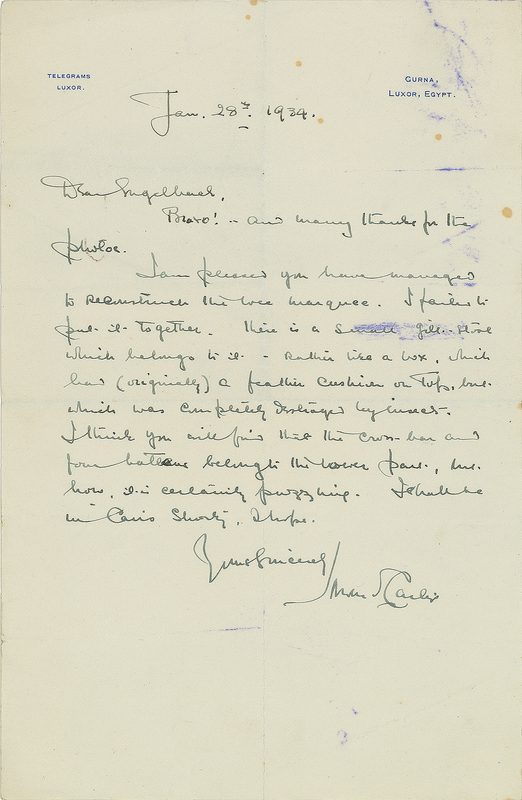 TELEGRAMS
LUXOR.
GURNA,
LUXOR, EGYPT.
Jan. 28th. 1934.
Dear Engelbach,
Bravo! – and many thanks for the
photos.
I am pleased you have managed
to reconstruct the wee marquee. I failed to
put it together. There is a small gilt stool
which belongs to it – rather like a box, which
had (originally) a feather cushion on top, but
which was completely destroyed by insects.
I think you will find that the cross-bar and
four battens belong to the lower part, but
how, it is certainly puzzling. I shall be
in Cairo shortly, I hope.
Yours sincerely
Howard Carter